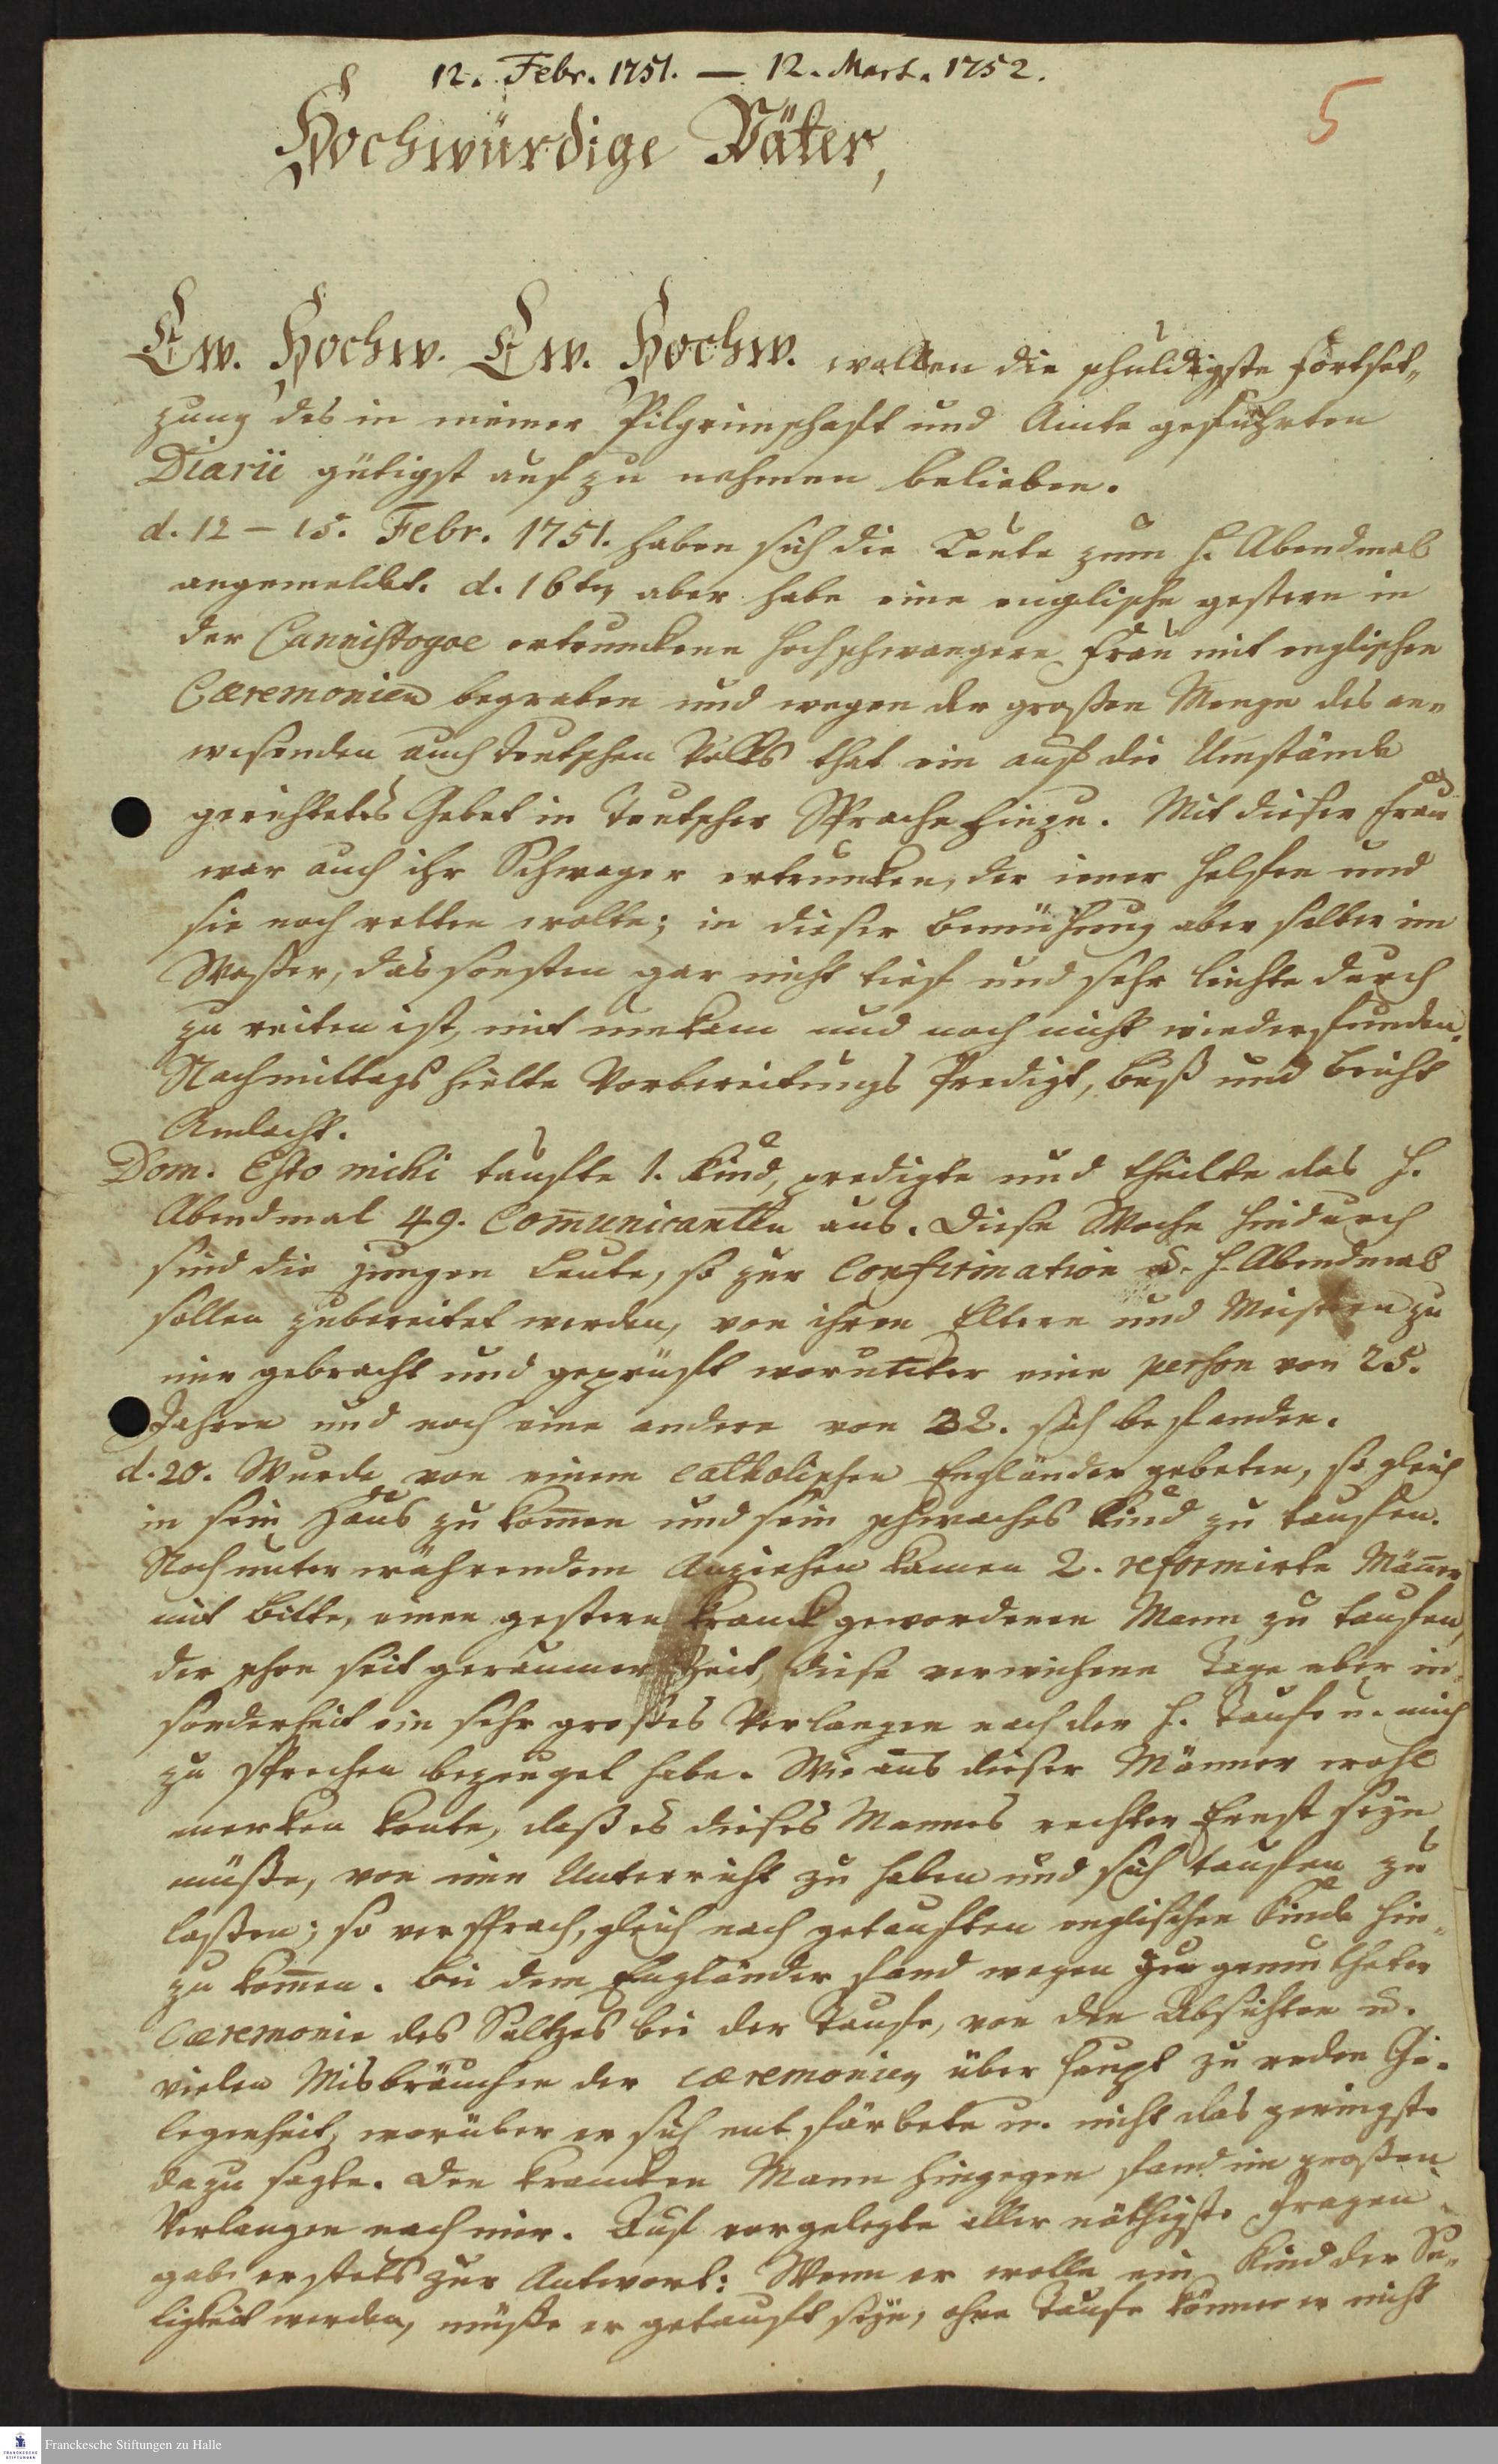 12. Febr. 1751. — 12. Mart. 1752.
5
Hochwürdige Väter,
Ew. Hochw. Ew. Hochw. wollen die schuldigste Fortset„
zung des in meiner Pilgrimschafft und Amte geführten
Diarii gütigst auf zu nehmen belieben.
d. 12 – 15. Febr. 1751. haben sich die Leute zum h. Abendmal
angemeldet. d. 16ten aber habe eine englische gestern in
der Cannistogoe ertrunckene hochschwangere Frau mit englischen
Cæremonien begraben und wegen der großen Menge des an„
wesenden auch teutschen Volks that ein auf die Umstände
gerichtetes Gebet in teutscher Sprache hinzu. Mit dieser Frau
war auch ihr Schwager ertruncken, der ihner helffen und
sie noch retten wolte; in dieser Bemühung aber selber im
Waßer, das sonsten gar nicht tief und sehr leichte durch
zu reiten ist, mit umkam und noch nicht wiederfunden.
Nachmittags hielte Vorbereitungs Predigt, Buß und Beicht
Andacht.
Dom. Esto mihi tauffte 1. Kind, predigte und theilte das h.
Abendmal 49. Com̄unicanten aus. Diese Woche hindurch
sind die jungen Leute, so zur Confirmation u. h. Abendmal
sollen zubereitet werden, von ihren Eltern und Meistern zu
mir gebracht und geprüfft worunter eine person von 25.
Jahren und noch eine andere von 32. sich befanden.
d. 20. Wurde von einem catholischen Engländer gebeten, so gleich
in sein Haus zu kom̄en und sein schwaches Kind zu tauffen.
Noch unter währendem Anziehen kamen 2. reformirte Män̄er
mit Bitte, einen gestern kranck gewordenen Mann zu tauffen,
der schon seit geraumer Zeit, diese verwichene Tage aber in„
sonderheit ein sehr großes Verlangen nach der h. Taufe u. mich
zu sprechen bezeuget habe. Wie aus dieser Männer wohl
mercken konte, daß es dieses Mannes rechter Ernst seyn
müßte, von mir Unterricht zu haben und sich tauffen zu
laßen; so versprach, gleich nach getaufften englischen Kinde hin„
zu kom̄en. Bei dem Engländer fand wegen zu gemutheter
Cæremonie des Saltzes bei der Taufe, von den Absichten u.
vielen Misbräuchen der cæremonien über haupt zu reden Ge„
legenheit, worüber er sich entfärbete u. nicht das geringste
dazu sagte. Den krancken Mann hingegen fand im großen
Verlangen nach mir. Auf vorgelegte aller nöthigste Fragen
gab er stets zur Antwort: Wenn er wolle ein Kind der Se„
ligkeit werden, müßte er getaufft seyn, ohne Taufe könne er nicht
Franckesche Stiftungen zu Halle